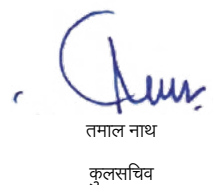 तमाल नाथ
कुलसचिव